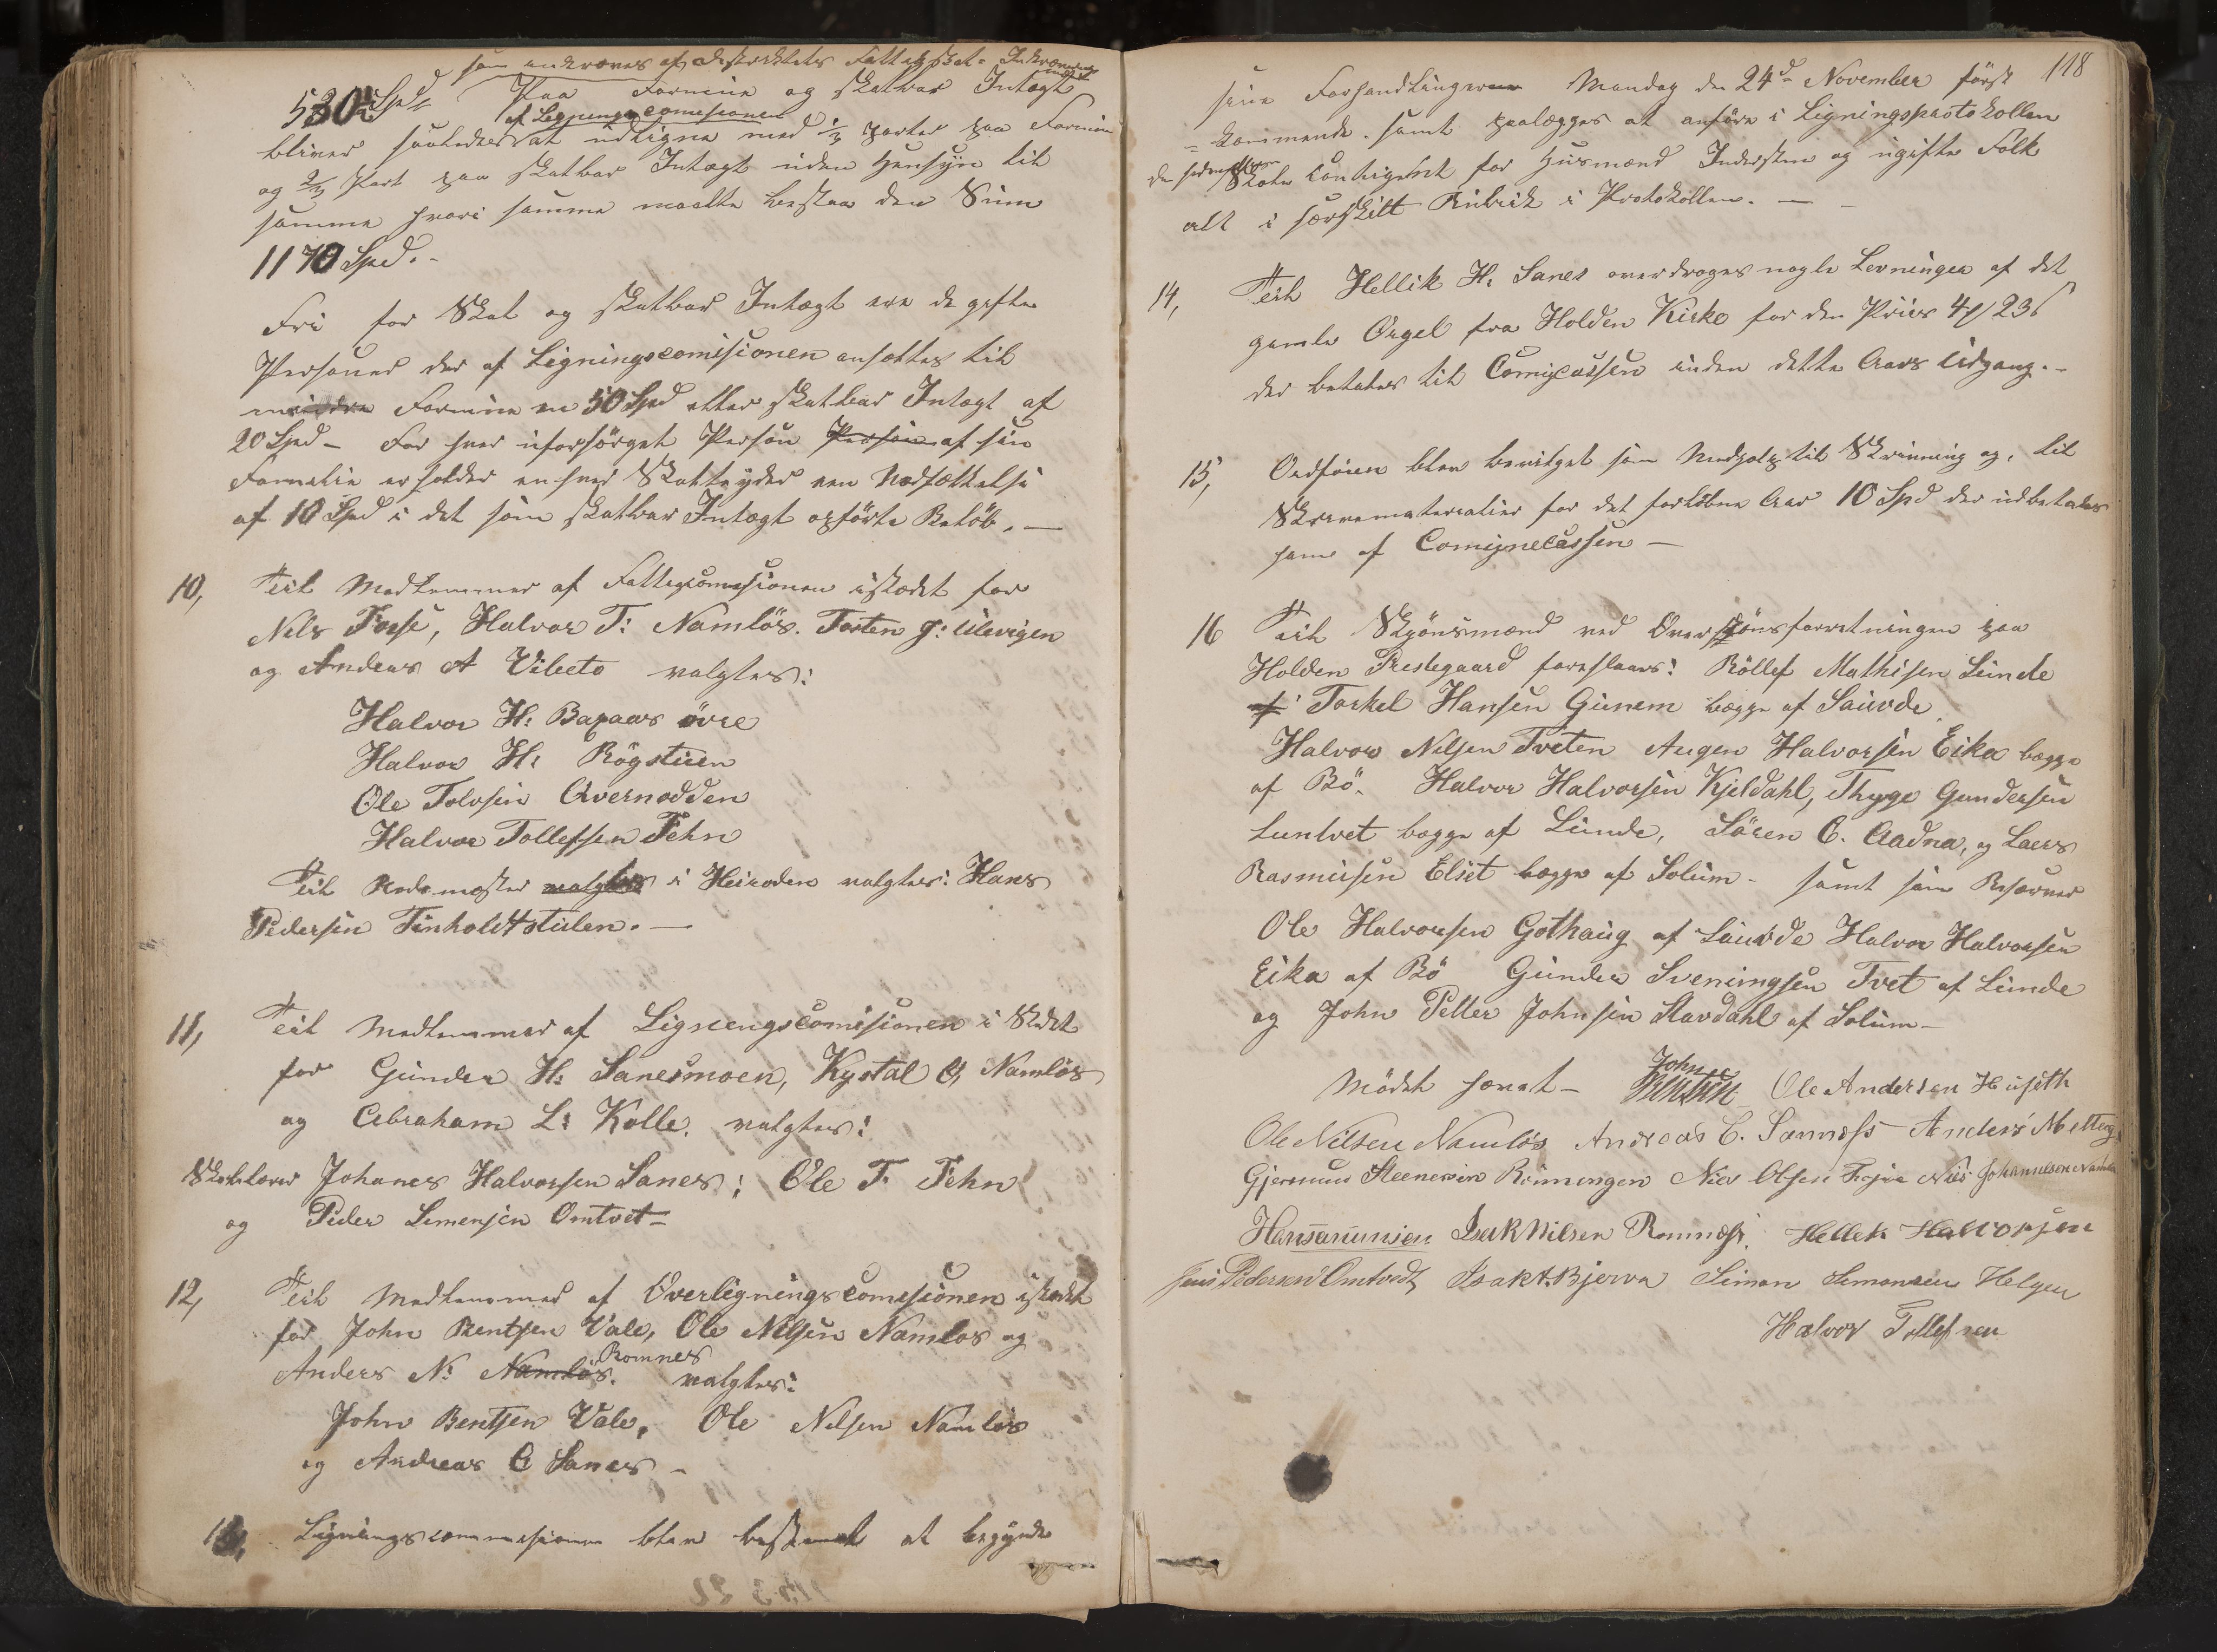 som udkræves af Distriktets Fattigkasse
530 Spd Paa Formue og skatbar Intægt
af Ligningscomisionen
bliver saaledes at udligne med 1/3 parter paa Formue
og 2/3 Part paa skatbar Intægt uden Hensyn til
samme hvori samme maatte bestaa den Sum
1170 Spd. -
Fri for Skat og skatbar Intægt ere de gifte
Personer der af Ligningscomisionen ansættes til
mindre Formue en 50 Spd eller skatbar Intægt af
20 Spd - For hver uforsörget Person Person af sin
Familie erholder enhver Skatteyder een Nedsættelse
af 10 Spd i det som skatbar Intægt opförte Belöb. —
10, Til Medlemmer af Fattigcomisionen istædet for
Nels Forse, Halvor T: Namlös. Torsten J: Ulevigen
og Andreas A Vibeto valgtes:
Halvor H: Baxaas övre
Halvor H: Rögstuen
Ole Tolvsen Qvernodden
Halvor Tollefsen Fehn
Til Rodemester valgtes i Heiroden valgtes: Hans
Pedersen Finholdtstulen. —
11, Til Medlemmer af Ligningscomisionen i Stedet
for Gunder H: Sanesmoen, Kystal O, Namlös
og Abraham L: Kolle. valgtes:
Skolelærer Johanes Halvorsen Sanes; Ole T. Fehn
og Peder Simensen Omtvet -
12, Til Medlemmer af Overligningscomisionen istedet
for John Bentsen Vale, Ole Nelsen Namlos og
Romnes
Anders N: Namlös. valgtes:
John Bentsen Vale, Ole Nelsen Namlös
og Andreas C Sanes -
13, Ligningscommisionen blev bestemt at begynde
118
sine Forhandlinger Mandag den 24d November först
= kommende. samt paalægges at anföre i Ligningsprotokollen
Skole Contigent for Husmænd Inderster og ugifte Folk
alt i særskilt Rubrik i Protokollen. — -
14, Til Hellik H: Sanes overdroges nogle Levninger af det
gamle Orgel fra Holden Kirke for den Priis 4 23
der betales til Comunecassen inden dette Aars Udgang. -
15, Ordföreren blev bevilget som Medhold til Skrivning og, til
Skrivematerialier for det forlöbne Aar 10 Spd der udbetales
ham af Comunecassen —
16 Til Skjönsmænd ved Overskjönsforretningen paa
Holden Prestegaard foreslaaes: Röllef Mathisen Lunde
Torkel Hansen Gunem begge af Sauvde
Halvor Nelsen Tveten Augen Halvorsen Eika begge
af Bö. Halvor Halvorsen Kjeldahl, Thyge Gundersen
Luntvet begge af Lunde, Sören C. Aadna, og Laers
Rasmusen Elset begge af Solum - samt som Reserver
Ole Halvorsen Gothaug af Sauvde Halvor Halvorsen
Eika af Bö Gunder Sveningsen Tvet af Lunde
og John Petter Johnsen Stavdahl af Solum -
Mödet hævet - John Bentsen Ole Andersen Huseth
Ole Nilsen Namlös Andreas C. Sannes Anders
Gjermund Steenersen Rönningen Niels Olsen Niels Johannesen Namlös
Isak Nilsen Romnes. Hellek Halvorsen
Jens Pedersen Omtvedt, Isak A. Bjerva Simon Simonsen Helgen
Halvor Tollefsen